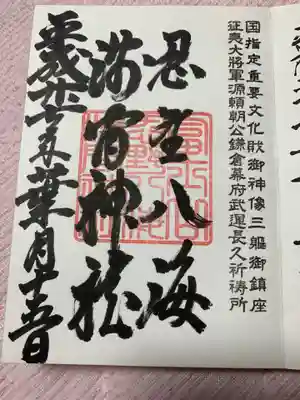 国指定重要文化財御神像三軀御鎮座
征夷大將軍源頼朝公鎌倉幕府武運長久祈祷所
忍埜八海
浅間神社
平成廿七年葉月十五日